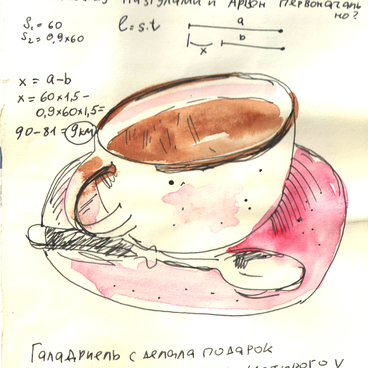 назгулами и Арвен первоначаль
но?
S₁ = 60
S₂ = 0,9×60
l = s.t
a
b
x
x = a-b
x = 60×1,5 -
0,9×60×1,5=
90-81 = 9км
Галадриель сделала подарок